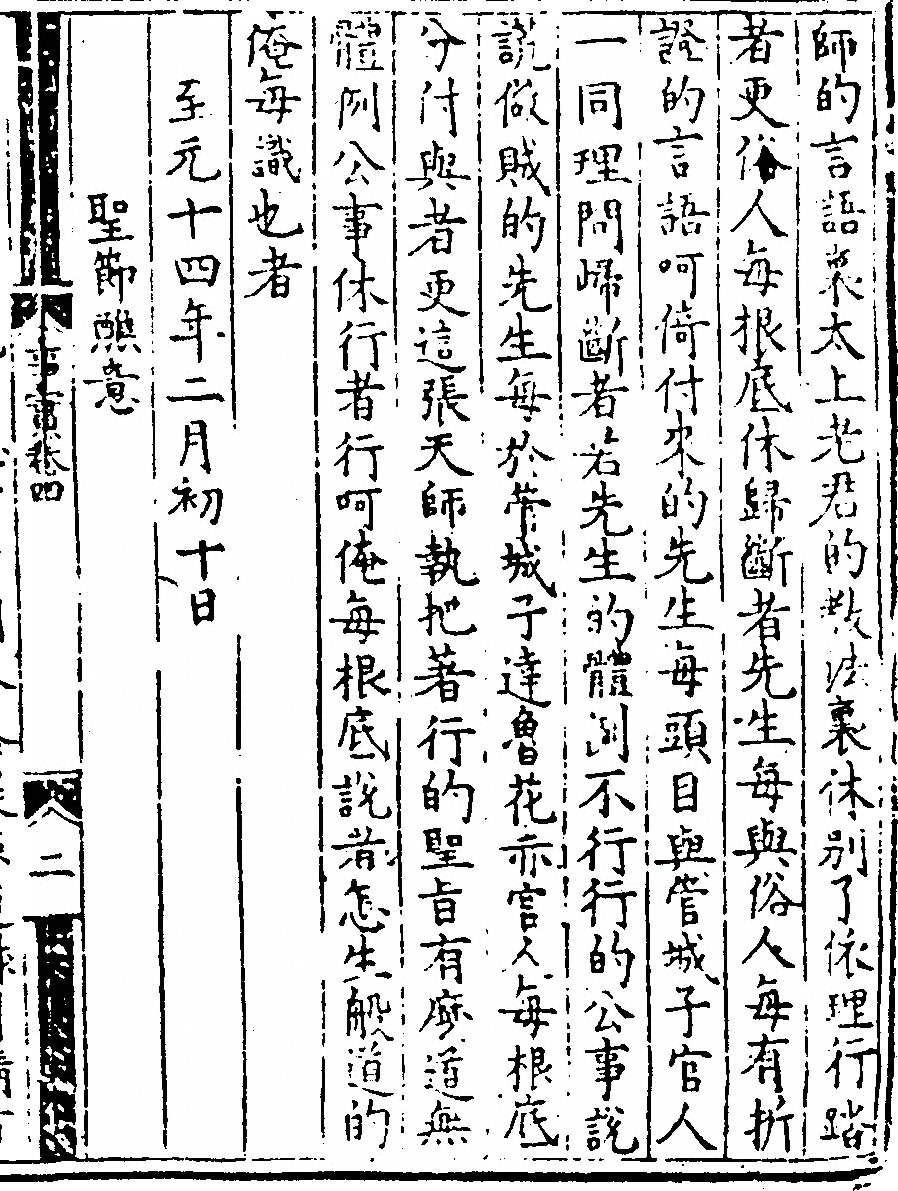 師的言語裏太上老君的教法裏休別了依理行踏
者更俗人每根底休歸斷者先生每與俗人每有折
證的言語呵倚付來的先生每頭目與管城子官人
一同理問歸斷者若先生的體例不行行的公事說
謊做賊的先生每於管城子達魯花赤官人每根底
分付與者更這張天師執把著行的聖旨有麼道無
體例公事休行者行呵俺每根底說者怎生般道的
俺每識也者
至元十四年二月初十日
聖節醮意
事實卷四
二